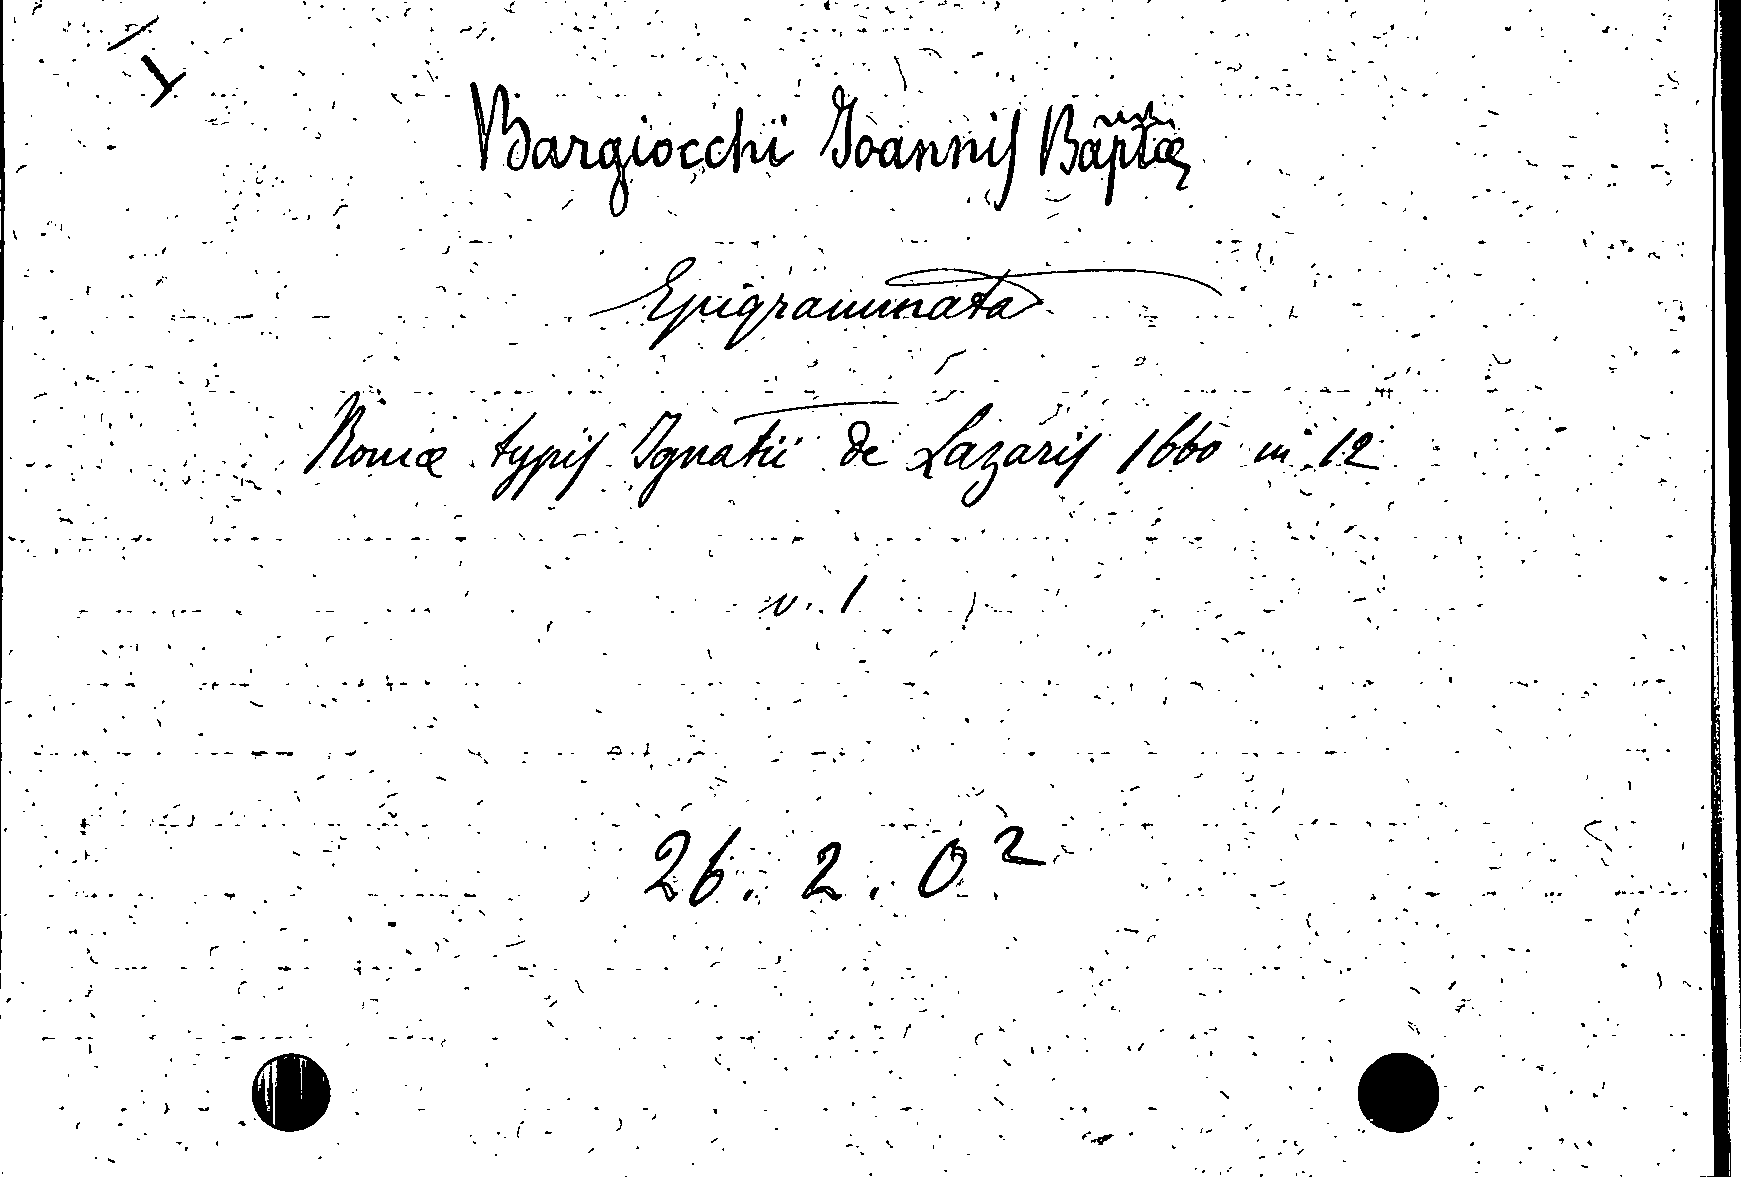 Bargiocchi Joannis Baptæ
Epigrammata
Romæ typis Ignatii de Lazaris 1660 in 12
v. 1
26. 2. O²